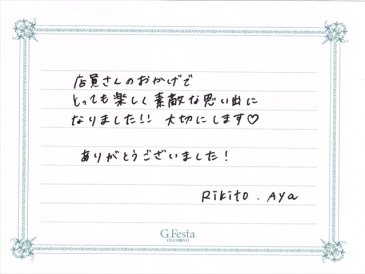 店員さんのおかげで
とっても楽しく素敵な思い出に
なりました!! 大切にします♡
ありがとうございました!
Rikito . Aya
G.Festa
DIAMOND